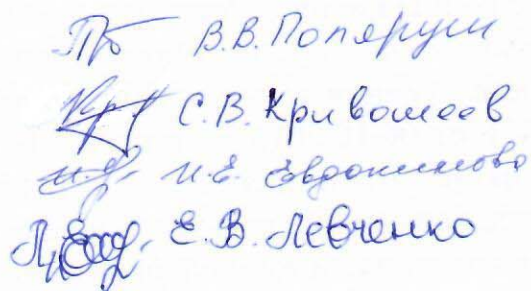 В.В. Попяруш
С.В. Кривошеев
И.Е. Евдокимова
Е.В. Левченко